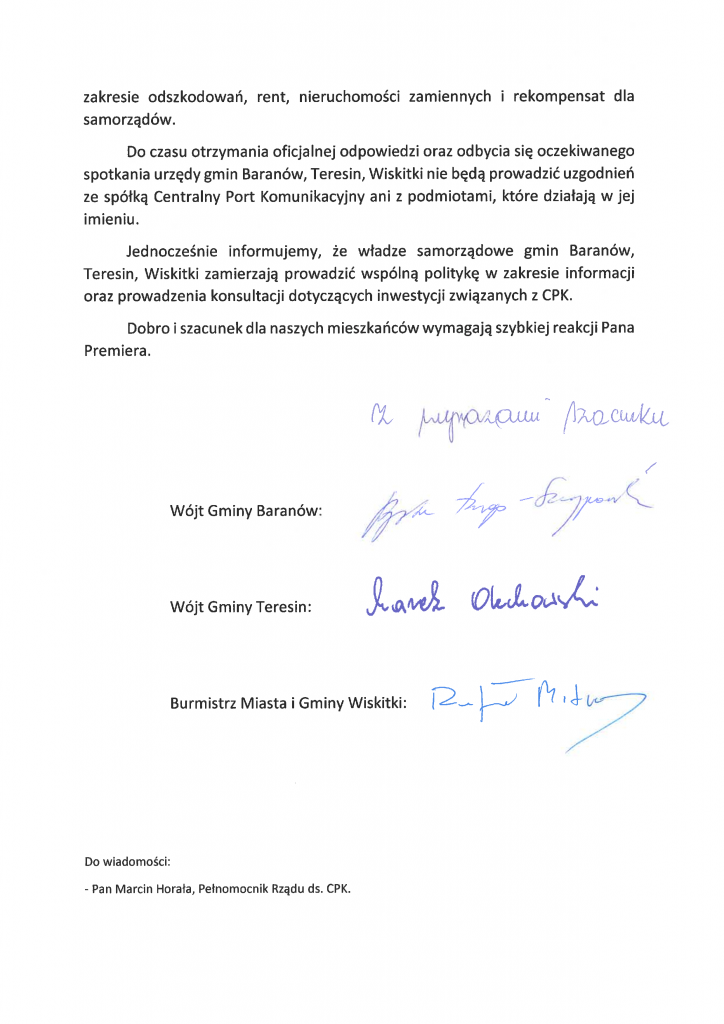 zakresie odszkodowań, rent, nieruchomości zamiennych i rekompensat dla
samorządów.
Do czasu otrzymania oficjalnej odpowiedzi oraz odbycia się oczekiwanego
spotkania urzędy gmin Baranów, Teresin, Wiskitki nie będą prowadzić uzgodnień
ze spółką Centralny Port Komunikacyjny ani z podmiotami, które działają w jej
imieniu.
Jednocześnie informujemy, że władze samorządowe gmin Baranów,
Teresin, Wiskitki zamierzają prowadzić wspólną politykę w zakresie informacji
oraz prowadzenia konsultacji dotyczących inwestycji związanych z CPK.
Dobro i szacunek dla naszych mieszkańców wymagają szybkiej reakcji Pana
Premiera.
Z wyrazami szacunku
Wójt Gminy Baranów:
Wójt Gminy Teresin: Marek Olechowski
Burmistrz Miasta i Gminy Wiskitki: Rafał
Do wiadomości:
- Pan Marcin Horała, Pełnomocnik Rządu ds. CPK.